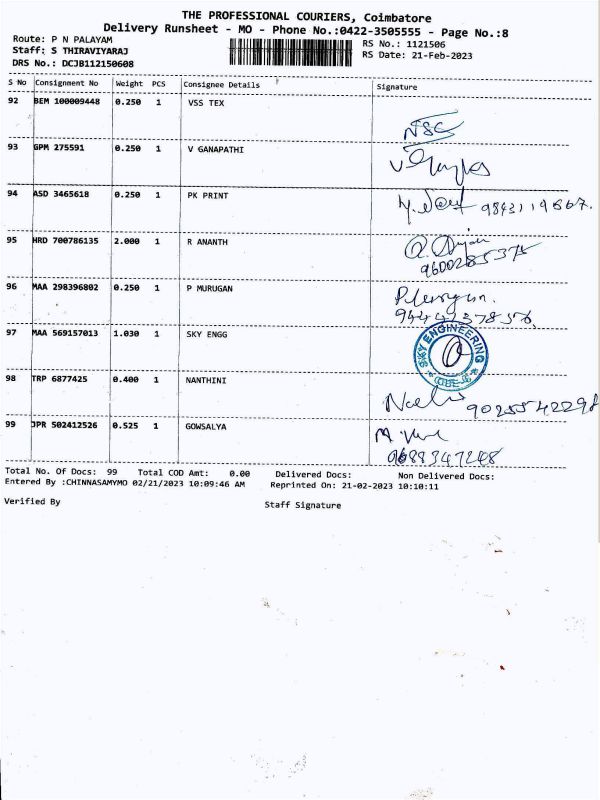 THE PROFESSIONAL COURIERS, Coimbatore
Delivery Runsheet - MO - Phone No.:0422-3505555 - Page No.:8
Route: P N PALAYAM
Staff: S THIRAVIYARAJ
DRS No.: DCJB112150608
RS No.: 1121506
RS Date: 21-Feb-2023
S No Consignment No Weight PCS Consignee Details Signature
92 BEM 100009448 0.250 1 VSS TEX
93 GPM 275591 0.250 1 V GANAPATHI
94 ASD 3465618 0.250 1 PK PRINT
95 HRD 700786135 2.000 1 R ANANTH
9600285375
96 MAA 298396802 0.250 1 P MURUGAN
P. Murugan.
97 MAA 569157013 1.030 1 SKY ENGG
SKY ENGINEERING
98 TRP 6877425 0.400 1 NANTHINI
9025542298
99 JPR 502412526 0.525 1 GOWSALYA
9688347248
Total No. Of Docs: 99 Total COD Amt: 0.00 Delivered Docs: Non Delivered Docs:
Entered By :CHINNASAMYMO 02/21/2023 10:09:46 AM Reprinted On: 21-02-2023 10:10:11
Verified By
Staff Signature